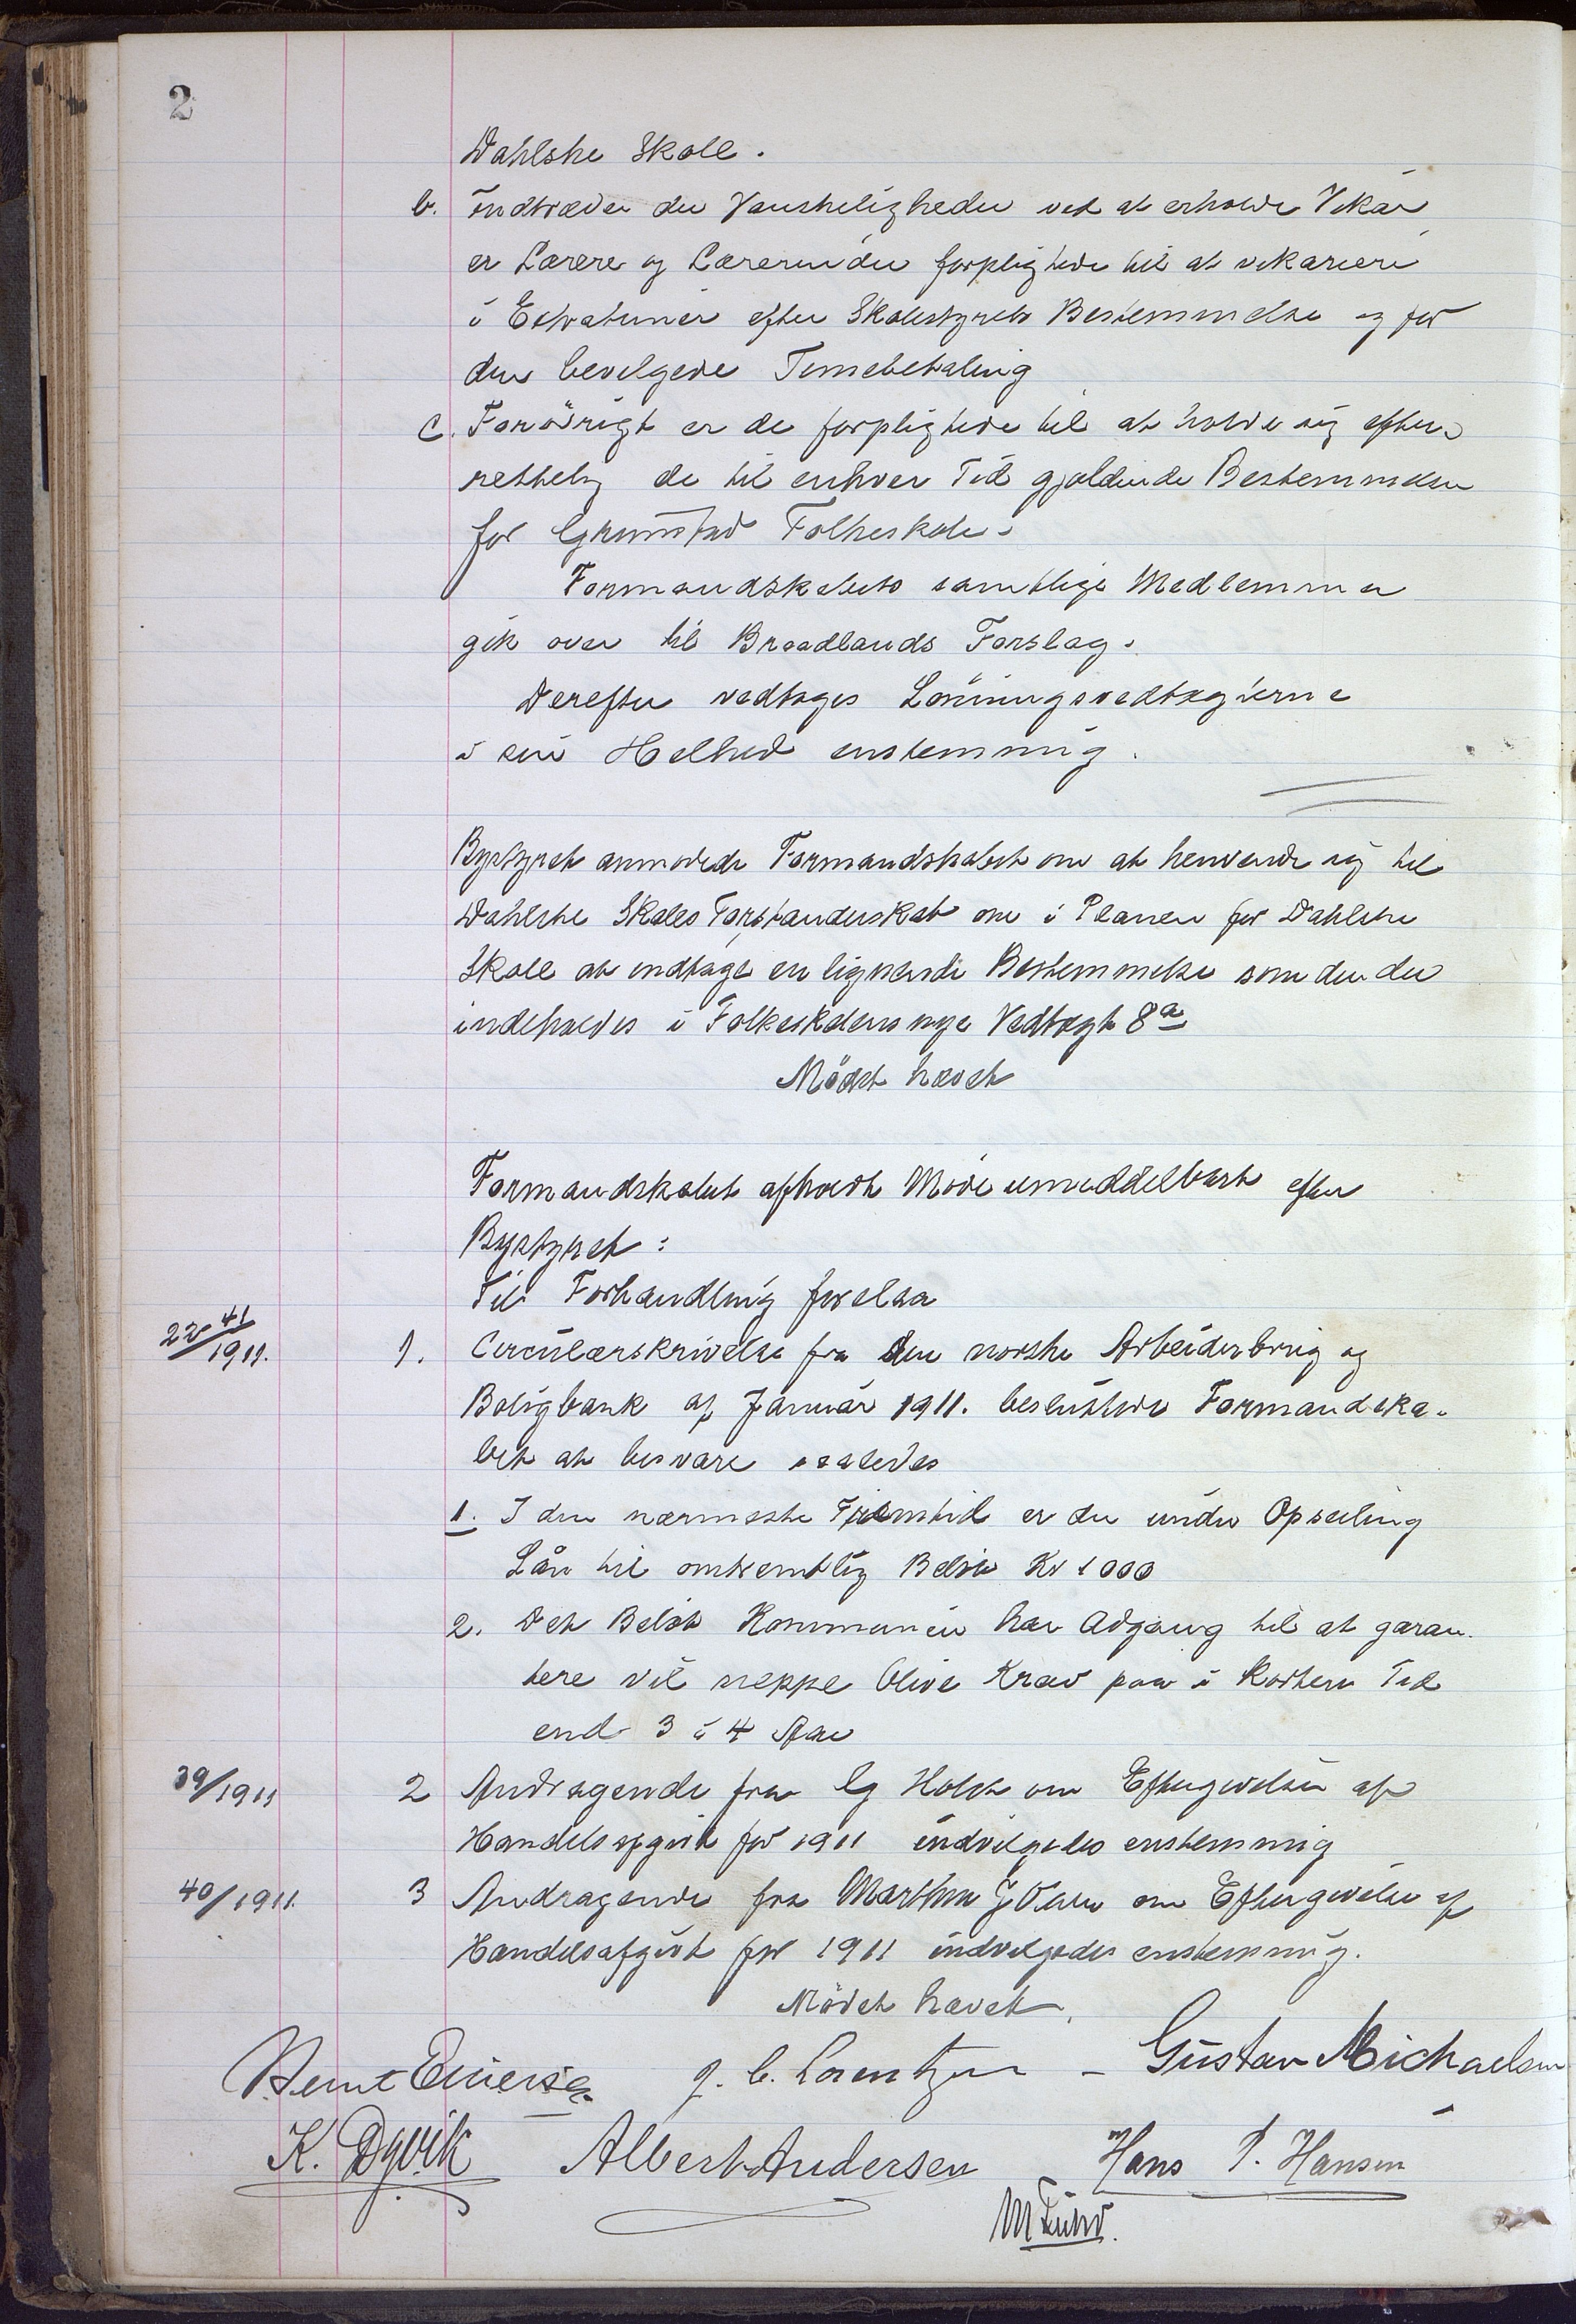 2
Dahlske Skole.
b. Indtræder der Vanskeligheder ved at erholde Vikar
er Lærere og Lærerinder forpligtede til at vikariere
i Extratimer efter Skolestyrets Bestemmelse og for
den bevilgede Timebetaling
c. Forövrigt er de forpligtede til at holde sig efter-
rettelig de til enhver Tid gjældende Bestemmelser
for Grimstad Folkeskole.
Formandskabets samtlige Medlemmer
gik over til Broadlands Forslag.
Derefter vedtoges Lönningsvedtægterne
i sin Helhed enstemmig.
Bystyret anmodede Formandskabet om at henvende sig til
Dahlske Skoles Forstanderskab om i Planen for Dahlske
Skole at indtage en lignende Bestemmelse som den der
indeholdes i Folkeskolens nye Vedtægt 8a
Mödet hævet
Formandskabet afholdt Möde umiddelbart efter
Bystyret:
Til Forhandling forelaa
22-41/1911. 1. Circulærskrivelse fra den norske Arbeiderbrug og
Boligbank af Januar 1911. besluttede Formandska-
bet at besvare saaledes
1. I den nærmeste Fremtid er der under Opseiling
Lån til omtrentlig Belöb Kr 1000
2. Det Belöb Kommunen har Adgang til at garan-
tere vil neppe blive Krav paa i kortere Tid
end 3 à 4 Aar
39/1911 2 Andragende fra G Holst om Eftergivelse af
Handelsafgift for 1911 indvilgedes enstemmig
40/1911. 3 Andragende fra Marthin om Eftergivelse af
Handelsafgift for 1911 indvilgedes enstemmig.
Mödet hævet.
Bernt Eiversen J. C. Lorentzen - Gustav Michaelsen
K. Dyvik Albert Andersen Hans P. Hansen
M Fuhr.